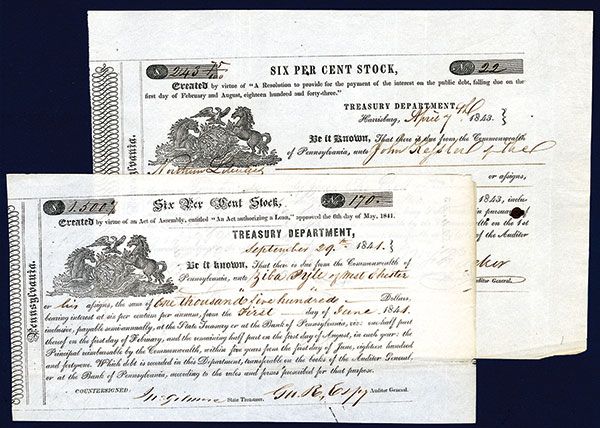 $ 243 75/100
SIX PER CENT STOCK,
No 22
Created by virtue of "A Resolution to provide for the payment of the interest on the public debt, falling due on the
first day of February and August, eighteen hundred and forty-three."
TREASURY DEPARTMENT,
Harrisburg, April 7th 1843.
Be it Known, That there is due from the Commonwealth
of Pennsylvania, unto John
Northern Liberties
or assigns,
1843, inclu-
in pursuance
on the 1st
of the Auditor
Auditor General.
$ 1500
Six Per Cent Stock,
No 170.
Created by virtue of an Act of Assembly, entitled "An Act authorizing a Loan," approved the 6th day of May, 1841.
TREASURY DEPARTMENT,
September 29th 1841.
Be it known, That there is due from the Commonwealth of
Pennsylvania, unto Ziba Pyle of West Chester
or his assigns, the sum of One thousand five hundred Dollars,
bearing interest at six per centum per annum, from the First day of June 1841
inclusive, payable semi-annually, at the State Treasury or at the Bank of Pennsylvania, viz: one half part
thereof on the first day of February, and the remaining half part on the first day of August, in each year: the
Principal reimbursable by the Commonwealth, within five years from the first day of June, eighteen hundred
and forty-one. Which debt is recorded in this Department, transferable on the books of the Auditor General,
or at the Bank of Pennsylvania, according to the rules and forms prescribed for that purpose.
COUNTERSIGNED,
Jno Gilmore State Treasurer.
Geo. R. Espy Auditor General.
Pennsylvania.